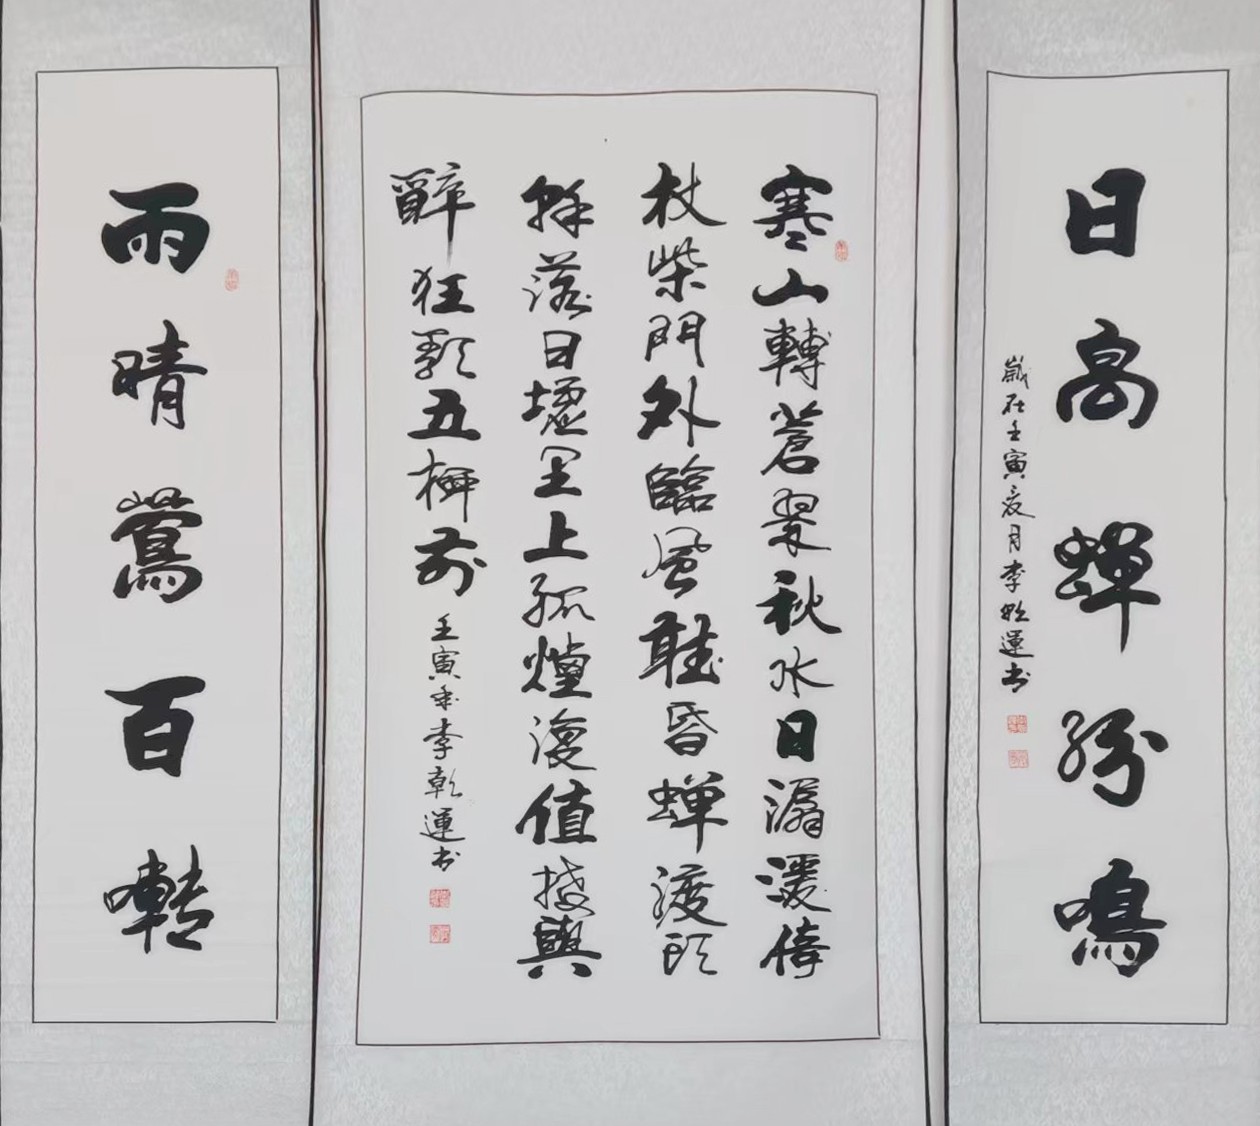 日高蝉紛鳴
歲在壬寅夏月李乾運书
寒山轉蒼翠秋水日潺湲倚
杖柴門外臨風聽昏蝉渡頭
餘落日墟里上孤煙復值接輿
醉狂歌五柳前
壬寅年李乾運书
雨晴鶯百囀